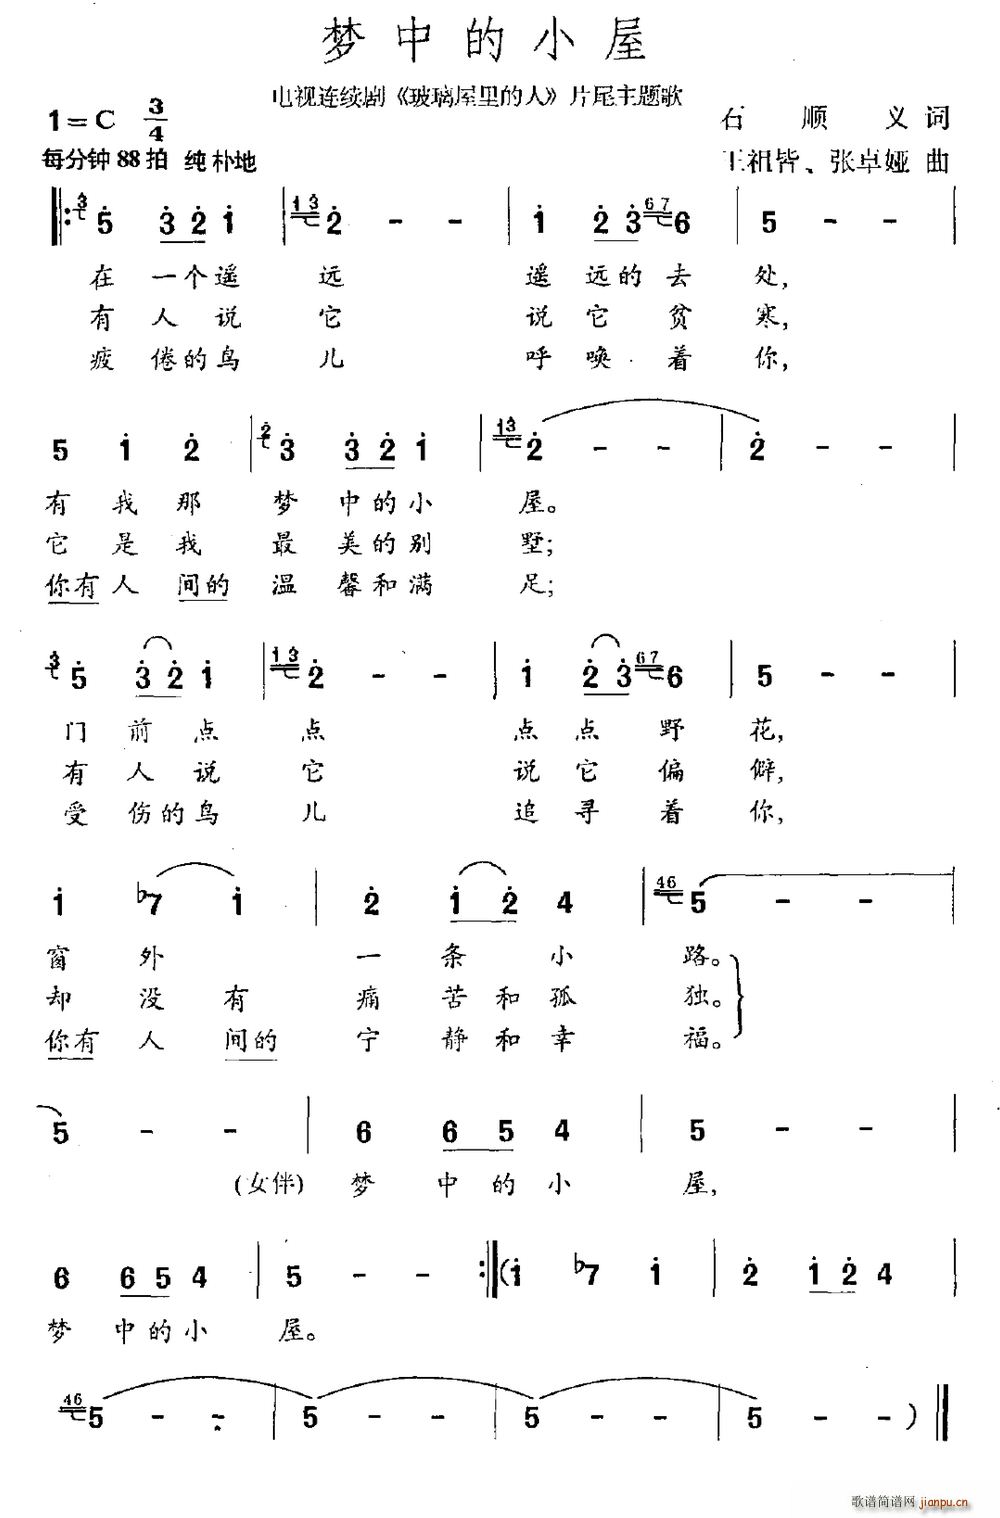 梦中的小屋
电视连续剧《玻璃屋里的人》片尾主题歌
1=C 3/4
石顺义 词
每分钟88拍 纯朴地
王祖皆、张卓娅 曲
3 5 3 2 1 | 13 2 - - | 1 2 3 67 6 | 5 - - |
在一个遥远 遥远的去处,
有人说它 说它贫寒,
疲倦的鸟儿 呼唤着你,
5 1 2 | 2 3 3 2 1 | 13 2 - - | 2 - - |
有我那梦中的小屋。
它是我最美的别墅;
你有人间的温馨和满足;
3 5 3 2 1 | 13 2 - - | 1 2 3 67 6 | 5 - - |
门前点点 点点野花,
有人说它 说它偏僻,
受伤的鸟儿 追寻着你,
1 ♭7 1 | 2 1 2 4 | 46 5 - - |
窗外一条小路。
却没有痛苦和孤独。
你有人间的宁静和幸福。
5 - - | 6 6 5 4 | 5 - - |
(女伴) 梦中的小屋,
6 6 5 4 | 5 - - :| (1 ♭7 1 | 2 1 2 4 |
梦中的小屋。
46 5 - - | 5 - - | 5 - - | 5 - - )
歌谱简谱网 jianpu.cn